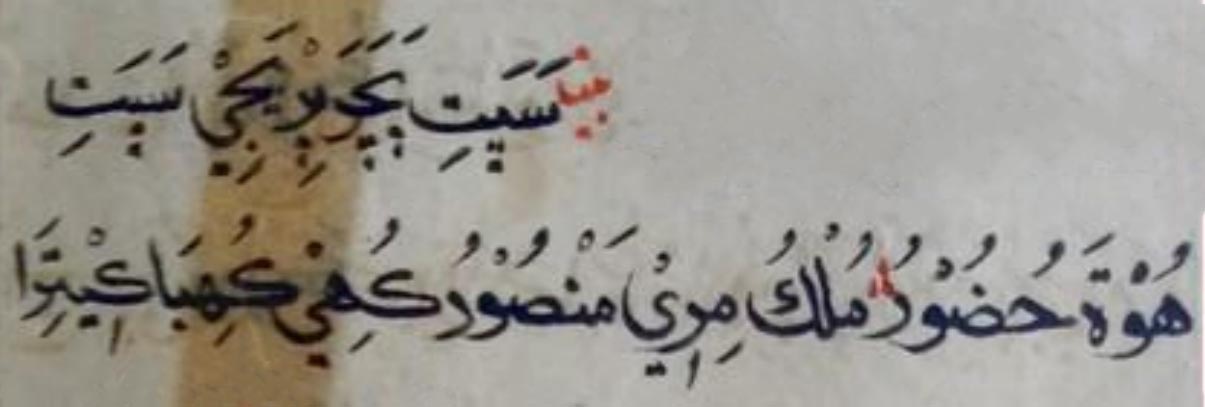 بيت سَڀَتِ پَچَرَ پِرْيَجِيْ سَڀَتِ
هُوْةَ حُضُوْرُ مُلْكُ مِرِيْ مَنْصُوْرُ كُهِيْ كُهِبَا كِيْتِرَا